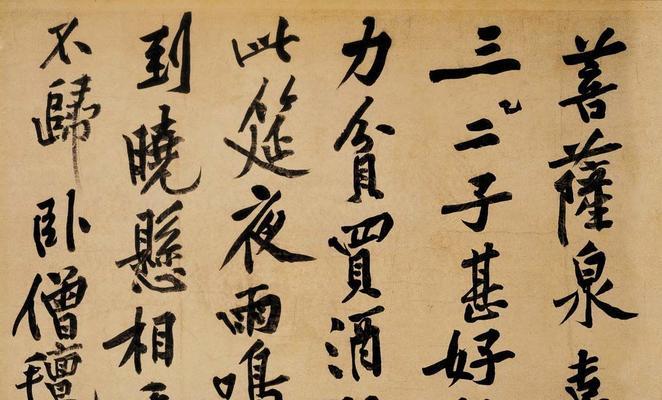 菩薩泉
三二子甚好
力貧買酒
此筵夜雨鳴
到曉懸相
不歸臥僧氈